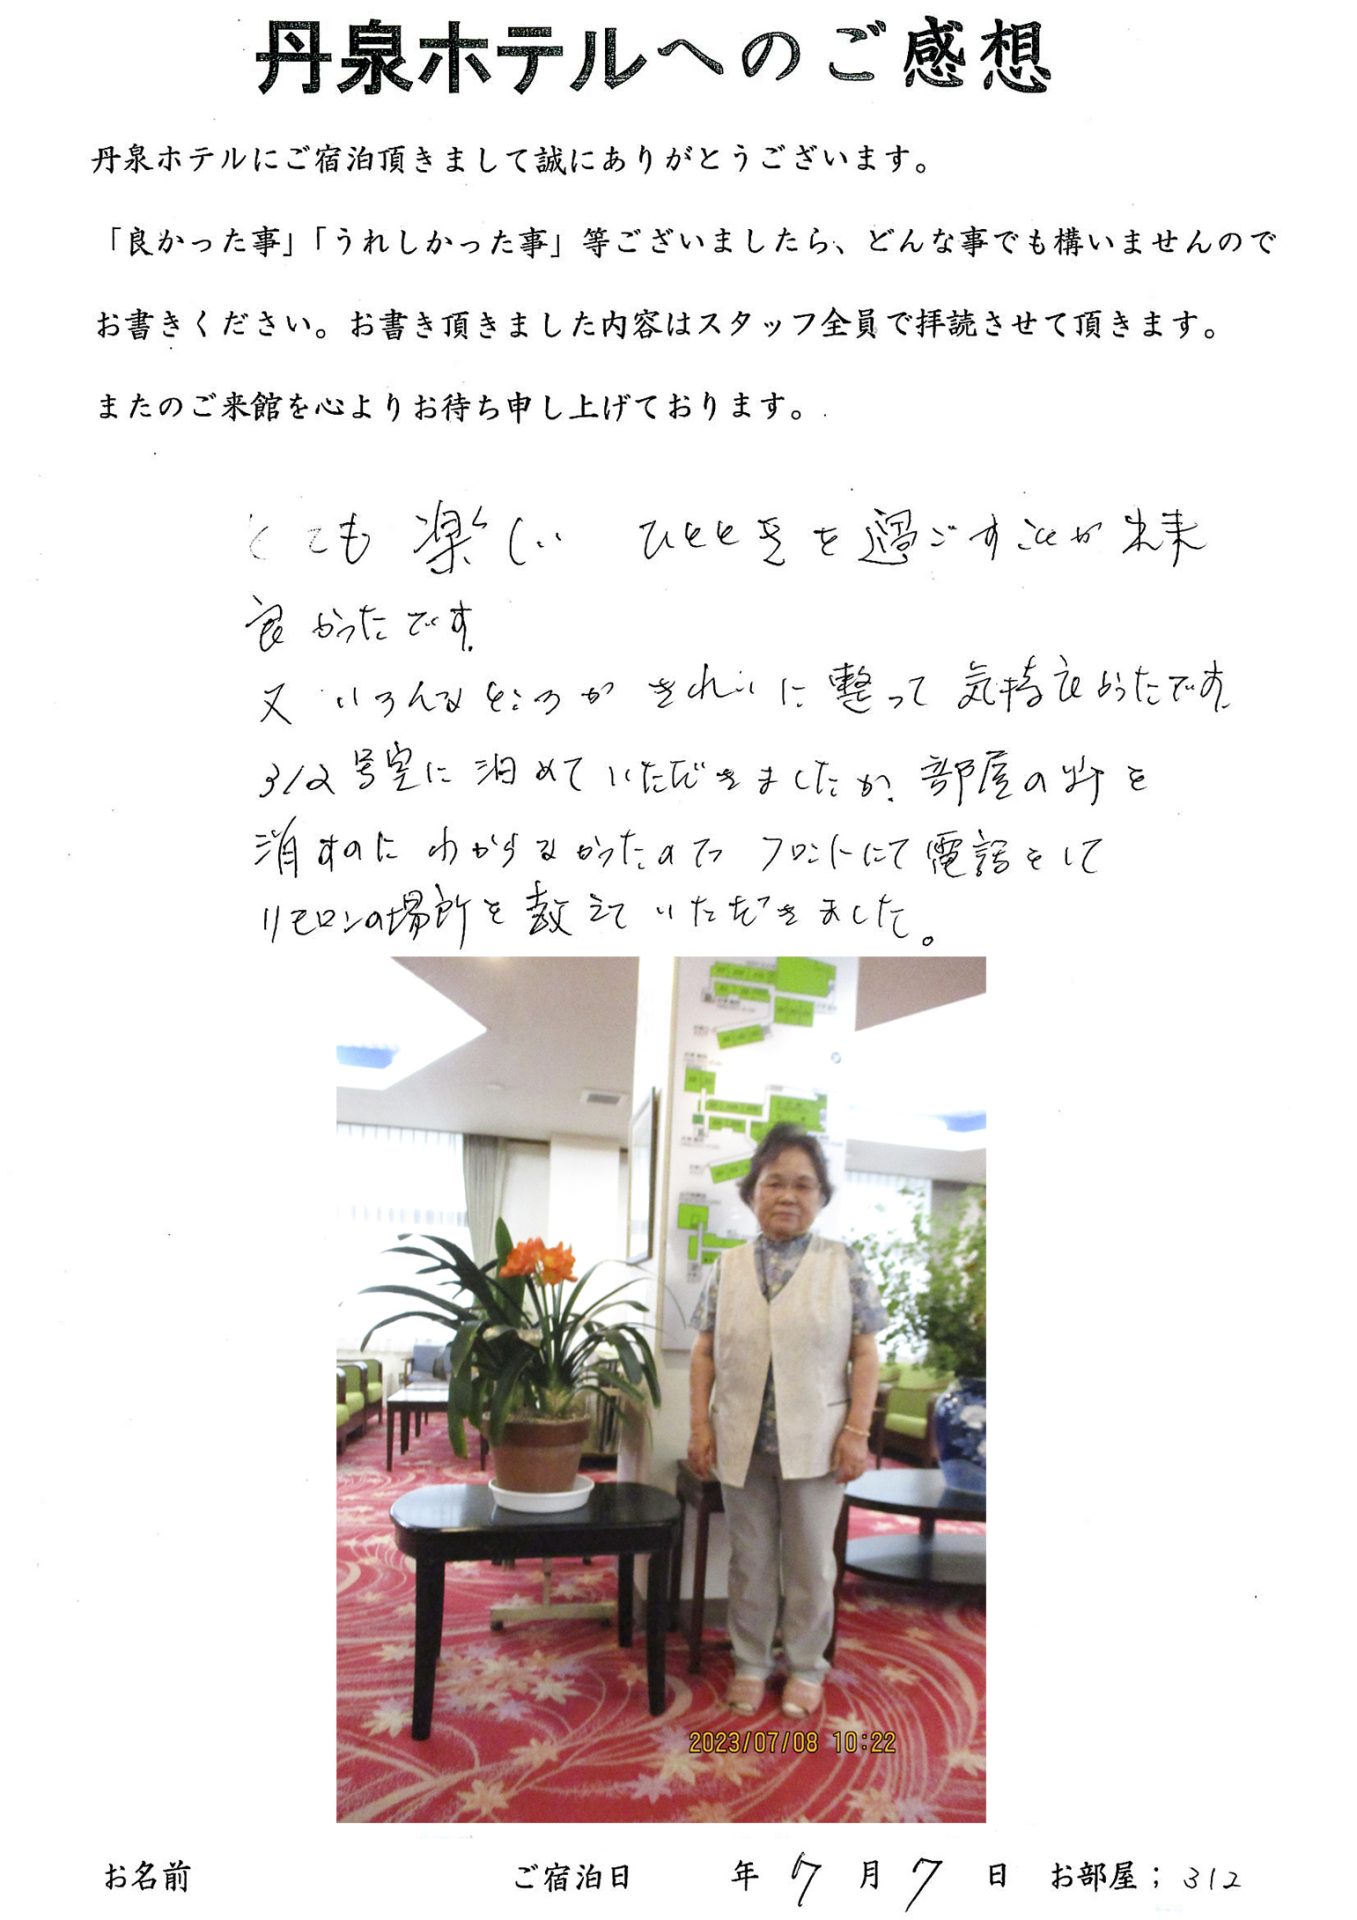 丹泉ホテルへのご感想
丹泉ホテルにご宿泊頂きまして誠にありがとうございます。
「良かった事」「うれしかった事」等ございましたら、どんな事でも構いませんので
お書きください。お書き頂きました内容はスタッフ全員で拝読させて頂きます。
またのご来館を心よりお待ち申し上げております。
とても楽しい ひとときを過ごすことが出来
良かったです。
又 いろんなところが きれいに整って 気持良かったです。
312号室に泊めていただきましたが、部屋の灯を
消すのに わからなかったので フロントにて電話をして
リモコンの場所を教えていただきました。
2023/07/08 10:22
お名前 ご宿泊日 年 7 月 7 日 お部屋; 312